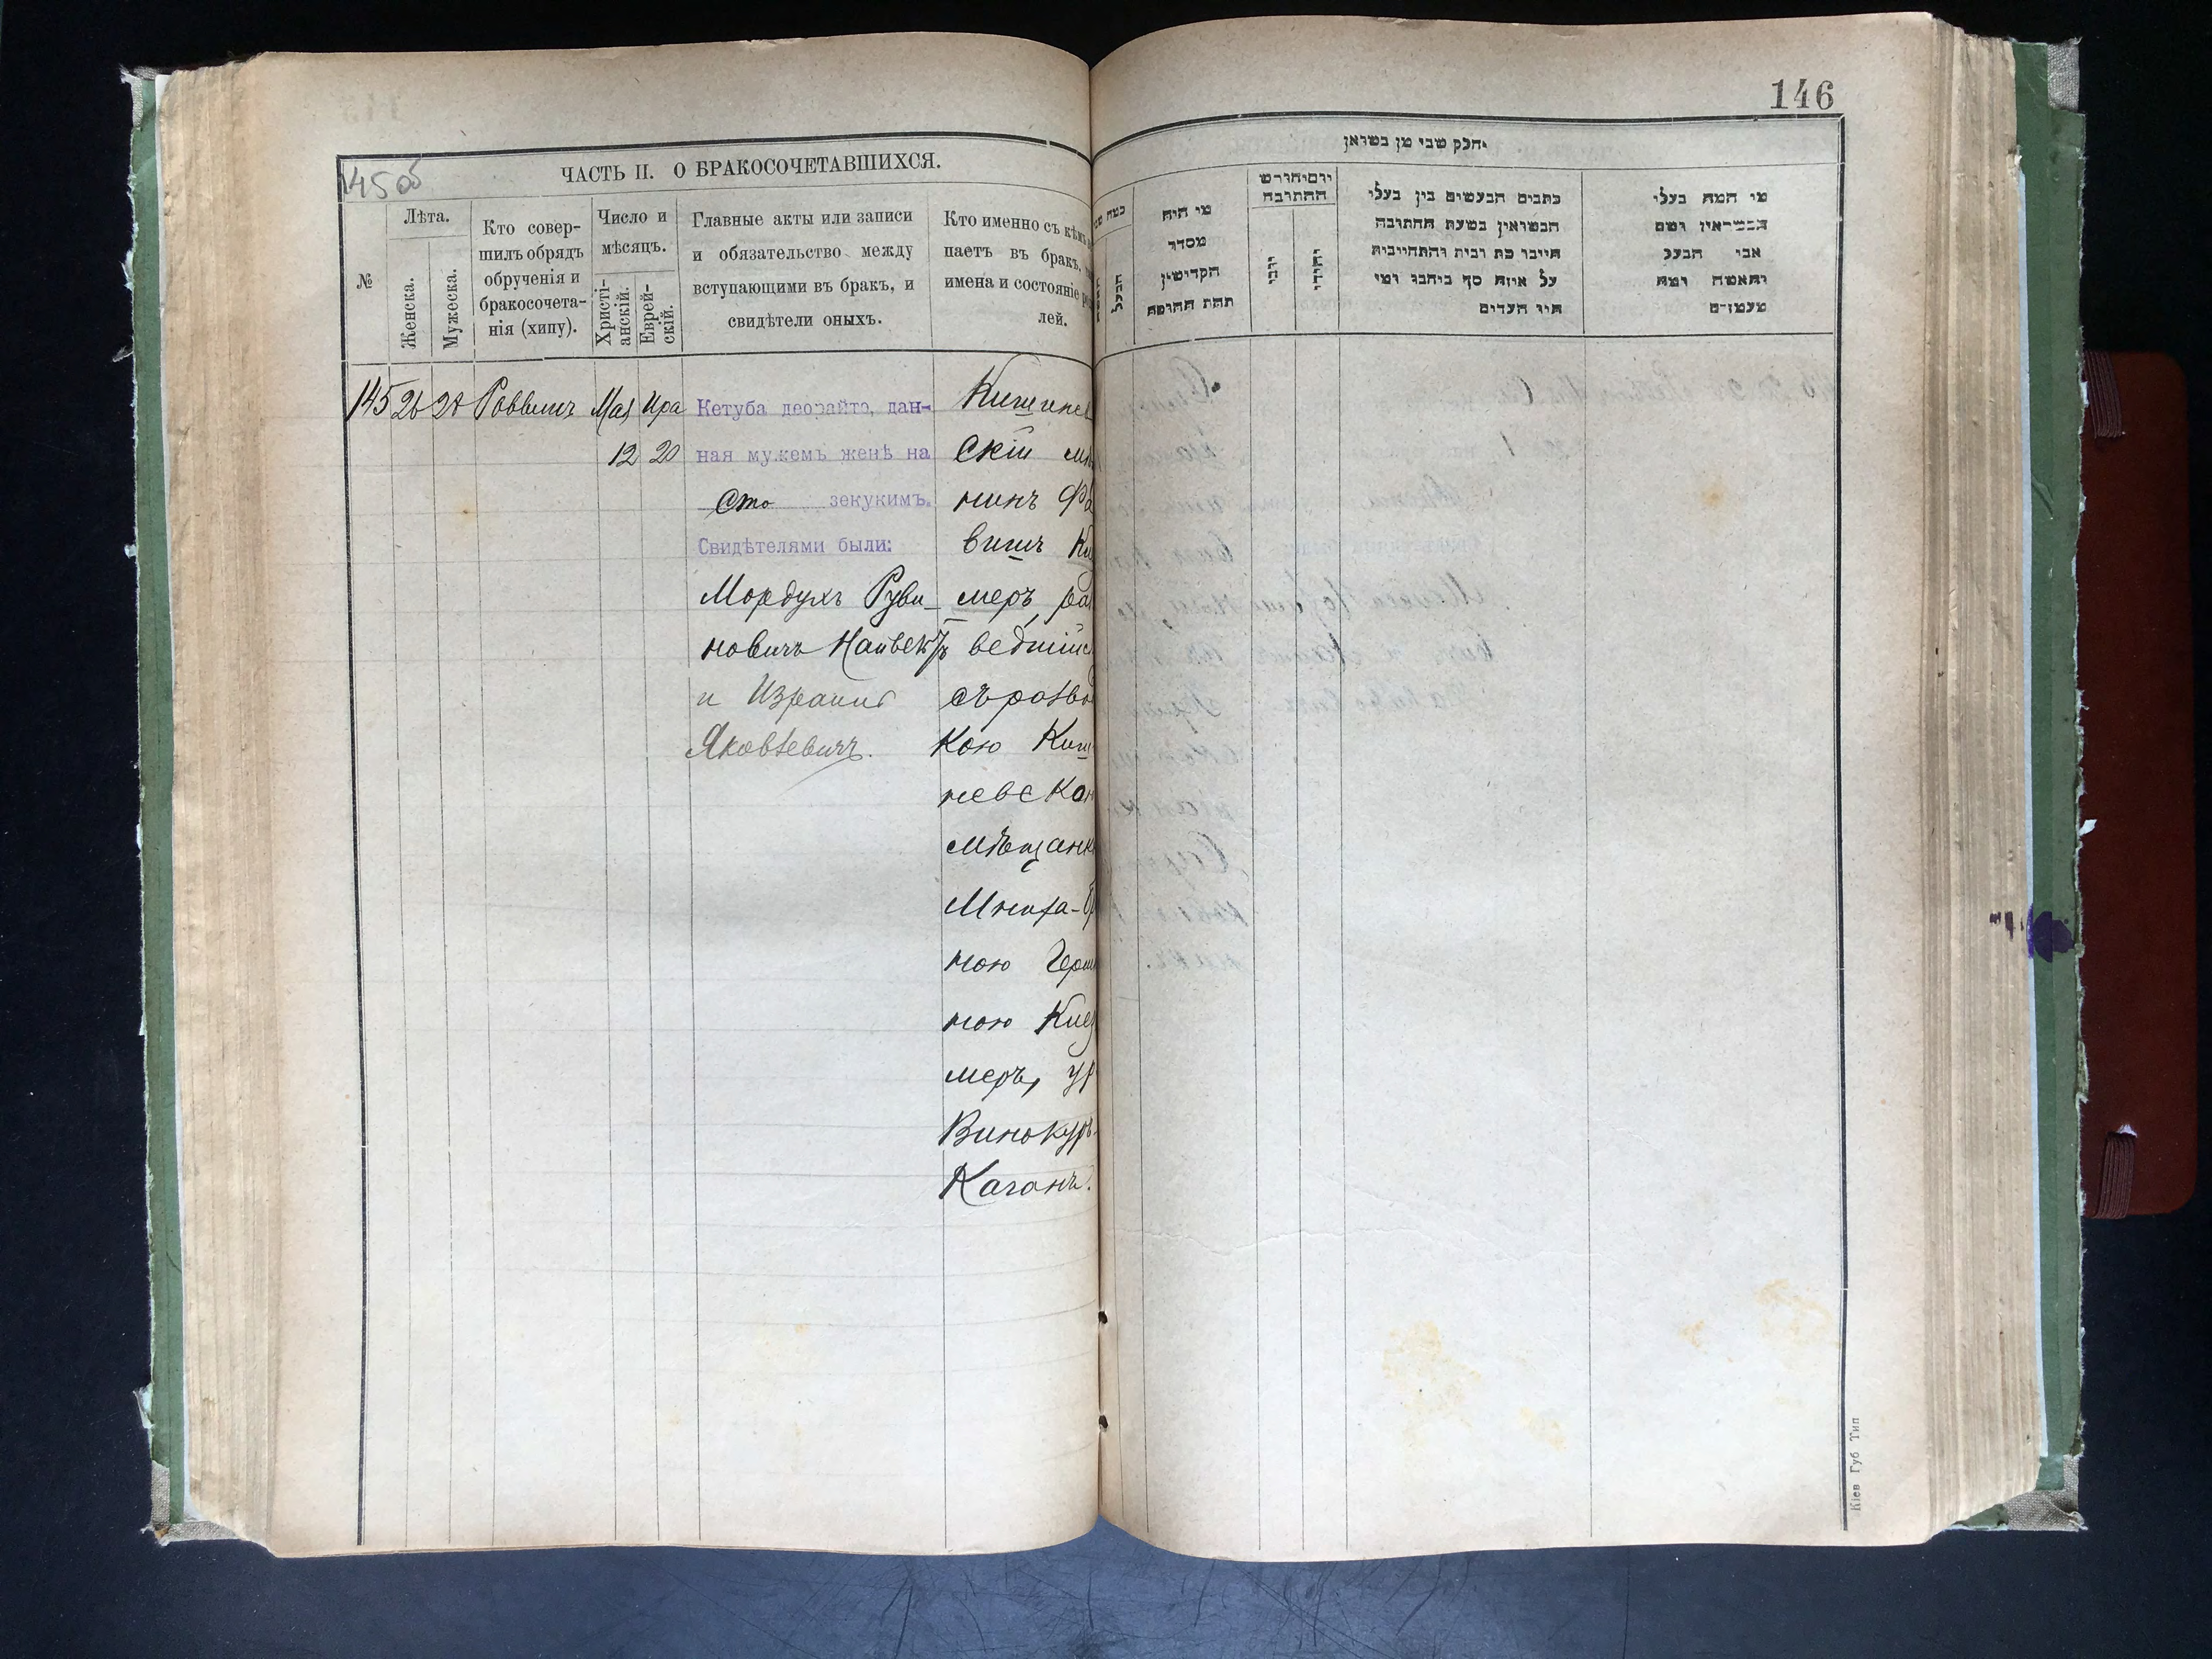 146
145 об
ЧАСТЬ II. О БРАКОСОЧЕТАВШИХСЯ.
№
Лѣта.
Женска.
Мужеска.
Кто совер-
шилъ обрядъ
обрученія и
бракосочета-
нія (хипу).
Число и
мѣсяцъ.
Христі-
анскій.
Еврей-
скій.
Главные акты или записи
и обязательство между
вступающими въ бракъ, и
свидѣтели оныхъ.
Кто именно съ кѣмъ
паетъ въ бракъ,
имена и состояніе
лей.
145 26 28 Раввинъ Мая Ира
12 20
Кетуба деорайто, дан-
ная мужемъ женѣ на
сто зекукимъ.
Свидѣтелями были:
Мордухъ Руви-
новичъ
и Израиль
Яковлевичъ.
Кишинев
скій мѣ
нинъ
вишъ
меръ, раз
ведшійс
съ развод
кою Киш
невскою
мѣщанк
ною Герш
ною Клей
меръ, ур
Винокуръ-
Каганъ.
חלק שני מן נשואין
כמה שני
הבעל
האשה
מי היה
מסדר
הקדושין
תחת החופה
יום וחודש
החתונה
נוצרי
יהודי
כתבים הנעשים בין בעלי
הנשואין בשעת החתונה
חייבו כת ובית והתחייבות
על איזה סך ביהבו ומי
היו העדים
מי המה בעלי
הנשואין ושם
אבי הבעל
והאשה ומה
מעמדם
Кіев Губ Тип